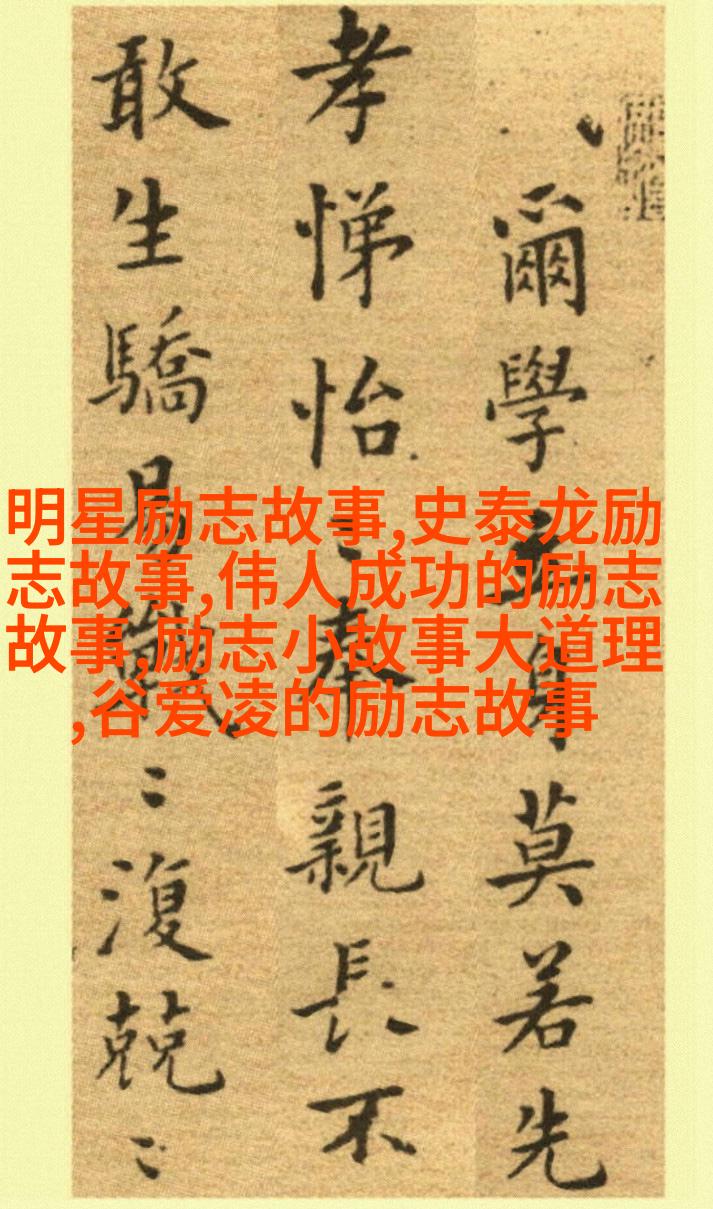 明星励志故事,史泰龙励
志故事,伟人成功的励志
故事,励志小故事大道理
,谷爱凌的励志故事
爾學立身莫若先
孝悌怡〻奉親長不
敢生驕易戰〻復兢〻